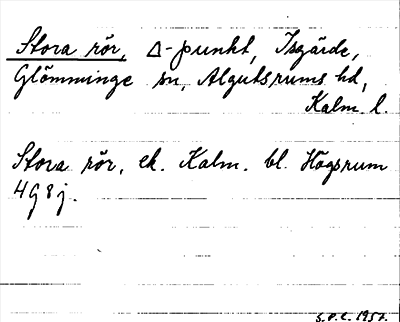 Stora rör, Δ-punkt, Isgärde,
Glömminge sn, Algutsrums hd,
Kalm. l.
Stora rör, ek. Kalm. bl. Högsrum
4G8j.
1957.